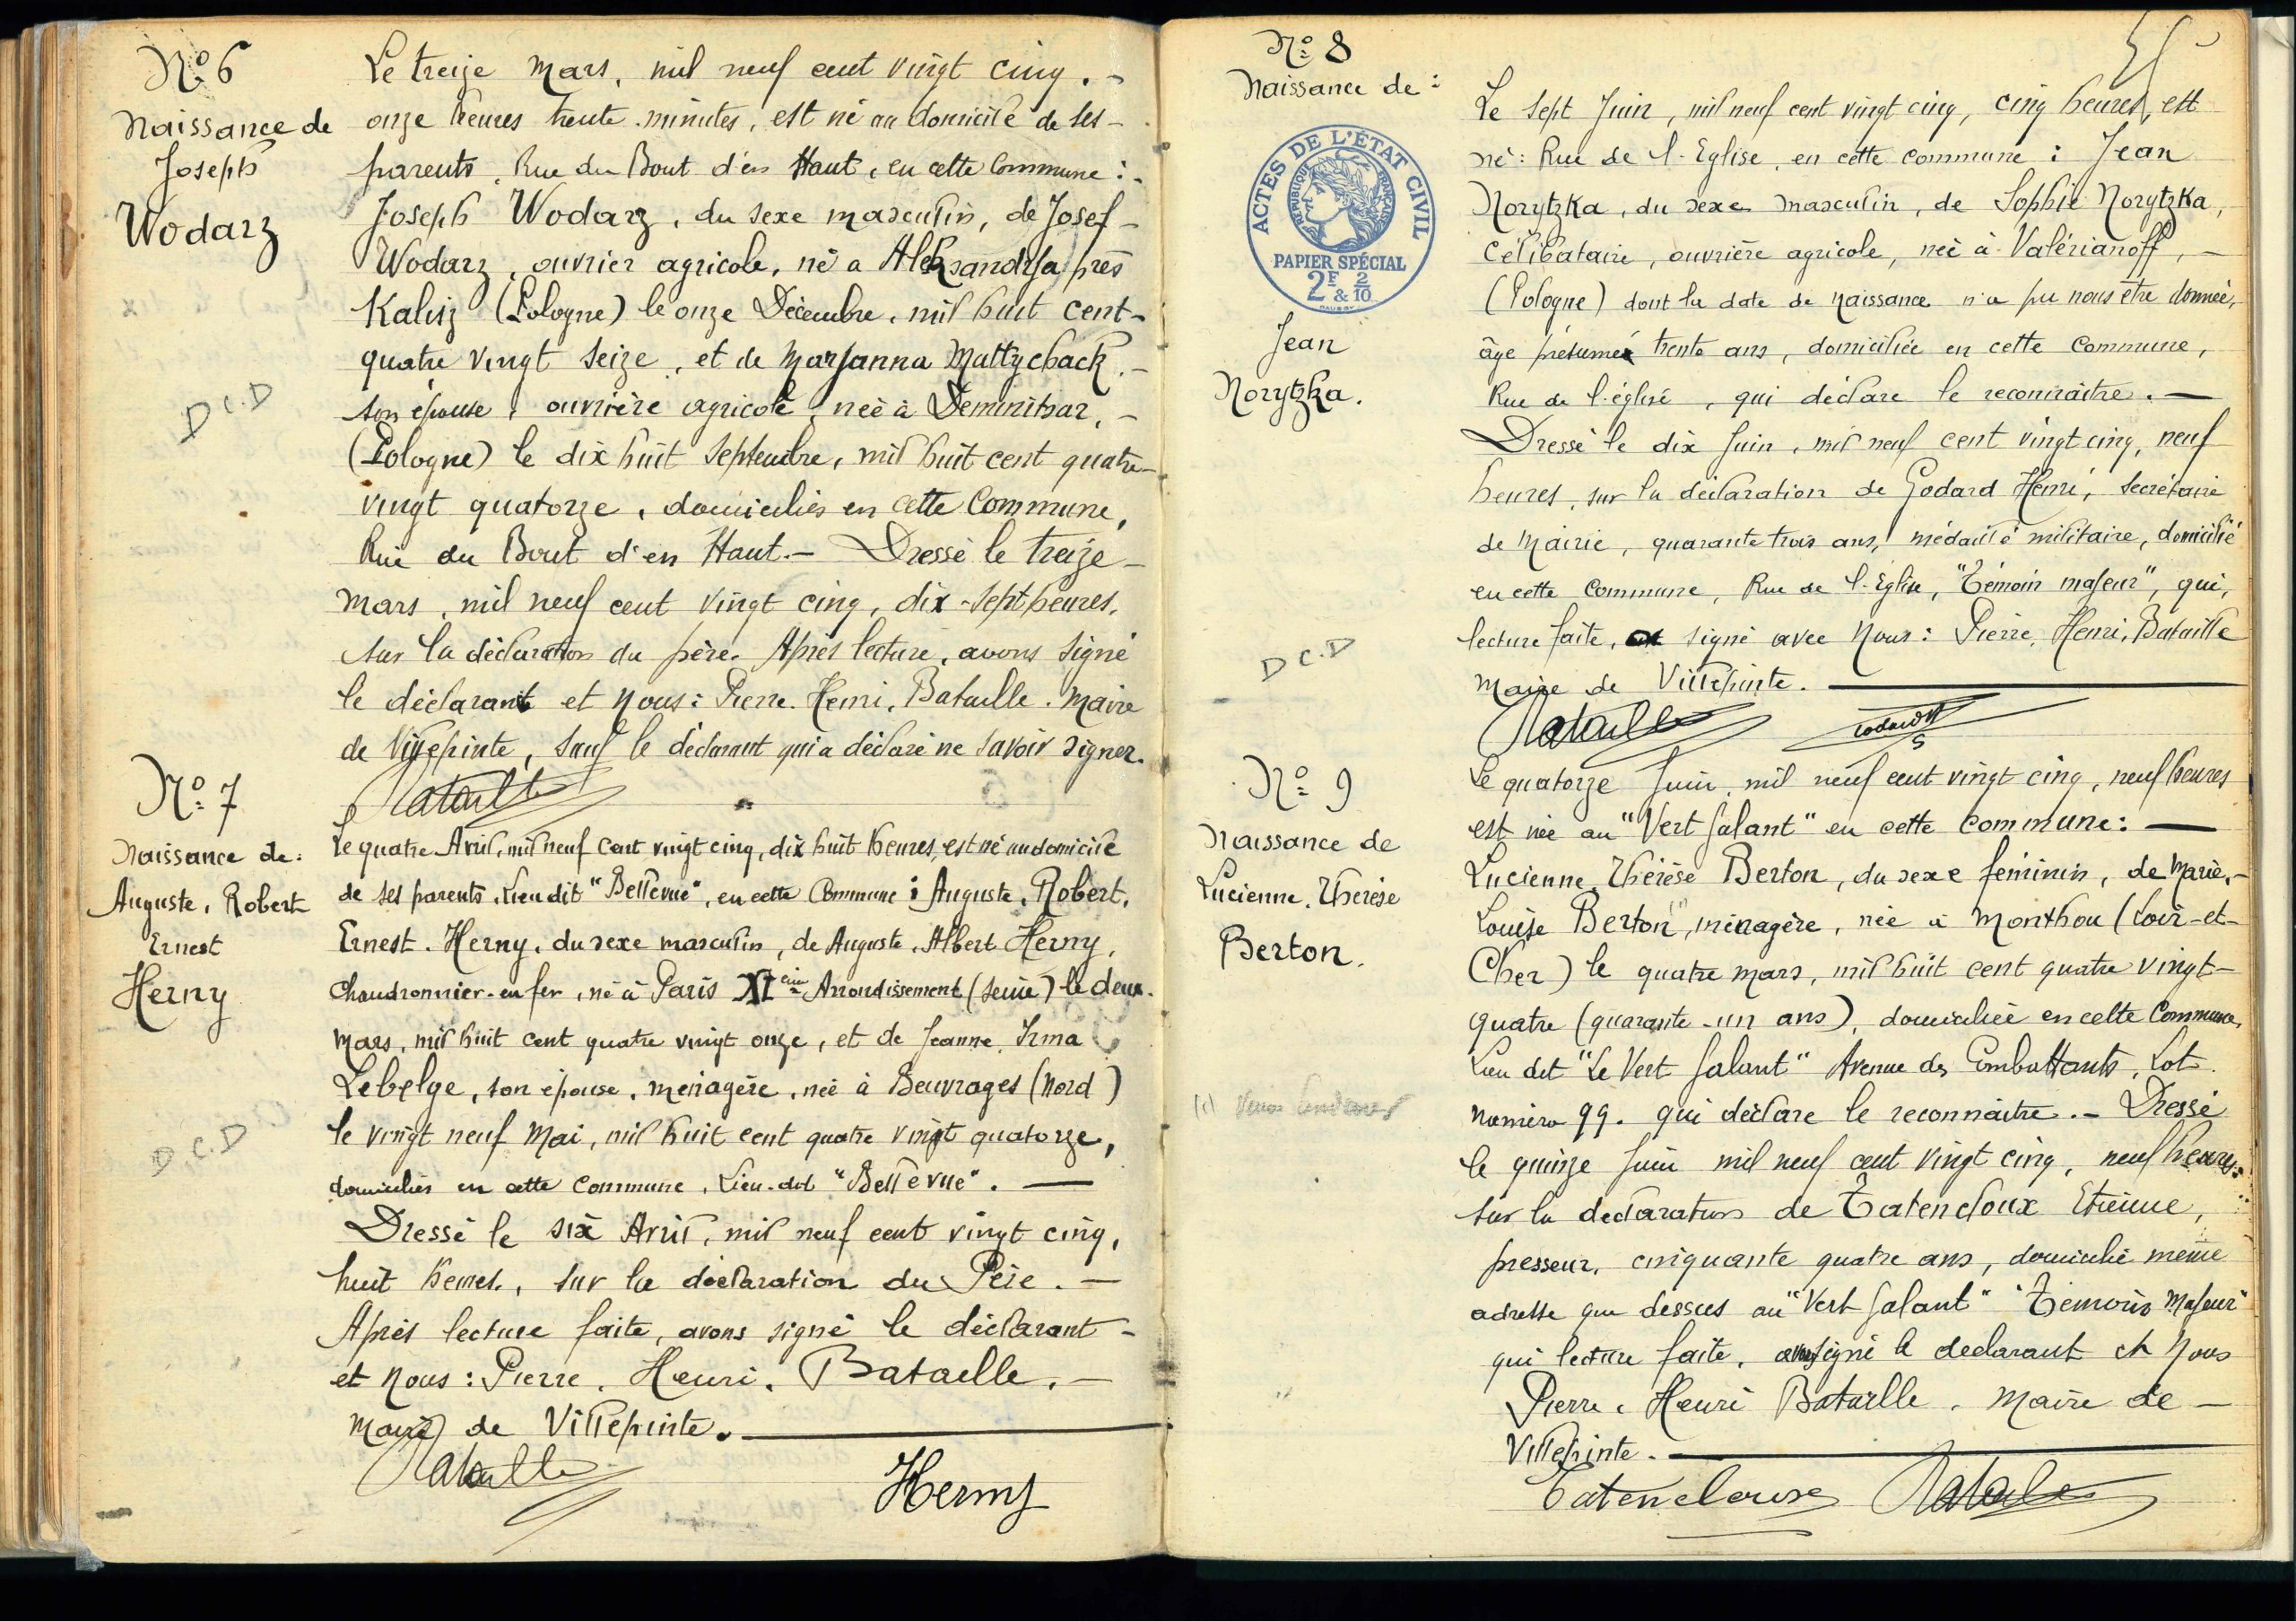 N° 6
Naissance de
Joseph
Wodarz
Le treize Mars, mil neuf cent vingt cinq. -
onze heures trente minutes, est né au domicile de ses -
parents, Rue du Bout d'en Haut, en cette Commune :
Joseph Wodarz, du sexe masculin, de Josef -
Wodarz, ouvrier agricole, né a Aleksandrja près
Kalisz (Pologne) le onze Décembre, mil huit cent -
quatre vingt seize, et de Marjanna Mattychack. -
son épouse, ouvrière agricole, née à Deminitsar, -
(Pologne) le dix huit Septembre, mil huit cent quatre -
vingt quatorze, domiciliés en cette Commune,
Rue du Bout d'en Haut. - Dressé le treize -
Mars, mil neuf cent vingt cinq, dix-sept heures,
sur la déclaration du père. Après lecture, avons signé
le déclarant et Nous : Pierre. Henri. Bataille. Maire
de Villepinte, sauf le déclarant qui a déclaré ne savoir signer.
Bataille
D C.D
N° 7
Naissance de :
Auguste, Robert
Ernest
Herny
Le quatre Avril, mil neuf Cent vingt cinq, dix huit heures, est né au domicile
de ses parents, Lieu dit "Bellevue", en cette Commune : Auguste, Robert,
Ernest. Herny, du sexe masculin, de Auguste, Albert Herny,
Chaudronnier-en fer, né à Paris XI eme Arrondissement (Seine) le deux -
Mars, mil huit cent quatre vingt onze, et de Jeanne, Irma
Lebelge, son épouse, ménagère, née à Beuvrages (Nord)
le vingt neuf Mai, mil huit cent quatre vingt quatorze,
domiciliés en cette Commune, Lieu-dit "Bellevue". -
Dressé le six Avril, mil neuf cent vingt cinq,
huit heures, sur la déclaration du Père. -
Après lecture faite, avons signé le déclarant -
et Nous : Pierre, Henri, Bataille. -
Maire de Villepinte.
Bataille Herny
D.C.D
N° 8
Naissance de :
ACTES DE L'ÉTAT CIVIL
RÉPUBLIQUE FRANÇAISE
PAPIER SPÉCIAL
2F & 2/10
Jean
Norytzka.
Le sept Juin, mil neuf cent vingt cinq, cinq heures, est
né : Rue de l'Eglise, en cette commune : Jean
Norytzka, du sexe masculin, de Sophie Norytzka,
Célibataire, ouvrière agricole, née à Valérianoff, -
(Pologne) dont la date de naissance n'a pu nous être donnée,
âge présumé trente ans, domiciliée en cette Commune,
Rue de l'église, qui déclare le reconnaître. -
Dressé le dix Juin, mil neuf cent vingt cinq, neuf
heures, sur la déclaration de Godard Henri, Secrétaire
de Mairie, quarante trois ans, médaillé militaire, domicilié
en cette commune, Rue de l'Eglise, "Témoin majeur", qui,
lecture faite, a signé avec Nous : Pierre, Henri, Bataille
Maire de Villepinte.
Bataille Godard
D C.D
N° 9
Naissance de
Lucienne, Thérèse
Berton.
Le quatorze Juin, mil neuf cent vingt cinq, neuf heures
est née au "Vert Galant" en cette Commune : -
Lucienne, Thérèse Berton, du sexe féminin, de Marie, -
Louise Berton, ménagère, née à Monthou (Loir-et-
Cher) le quatre mars, mil huit cent quatre vingt -
quatre (quarante-un ans), domiciliée en cette Commune,
Lieu dit "Le Vert Galant" Avenue des Combattants, Lot
numéro 99. qui déclare le reconnaître. - Dressé
le quinze Juin mil neuf cent vingt cinq, neuf heures,
sur la déclaration de Tatencloux Etienne,
presseur, cinquante quatre ans, domicilié même
adresse que dessus au "Vert Galant" "Témoin Majeur"
qui lecture faite, avons signé le déclarant et Nous
Pierre, Henri Bataille. Maire de -
Villepinte.
Tatencloux Bataille